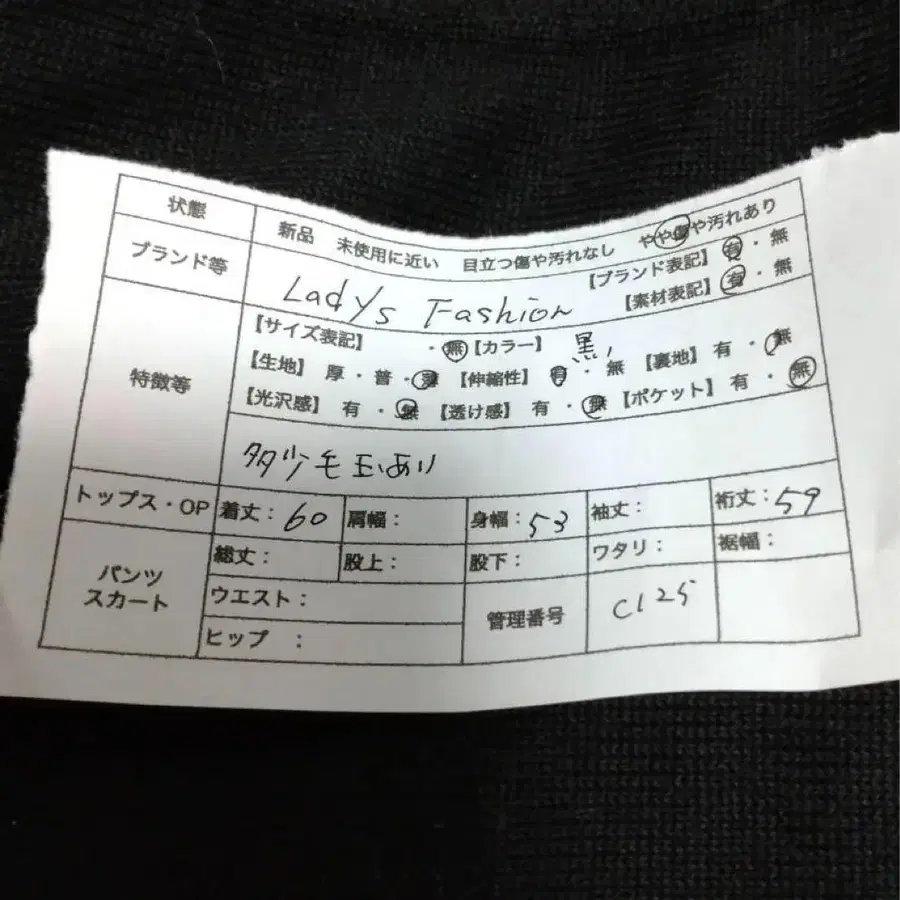 状態
新品 未使用に近い 目立つ傷や汚れなし やや傷や汚れあり
ブランド等
Ladys Fashion
【ブランド表記】 有・無
【素材表記】 有・無
特徴等
【サイズ表記】 ・無 【カラー】 黒
【生地】 厚・普・薄 【伸縮性】 有・無 【裏地】 有・無
【光沢感】 有・無 【透け感】 有・無 【ポケット】 有・無
毛玉あり
トップス・OP 着丈:60 肩幅: 身幅:53 袖丈: 裄丈:59
パンツ
スカート
総丈: 股上: 股下: ワタリ: 裾幅:
ウエスト:
ヒップ :
管理番号 C125